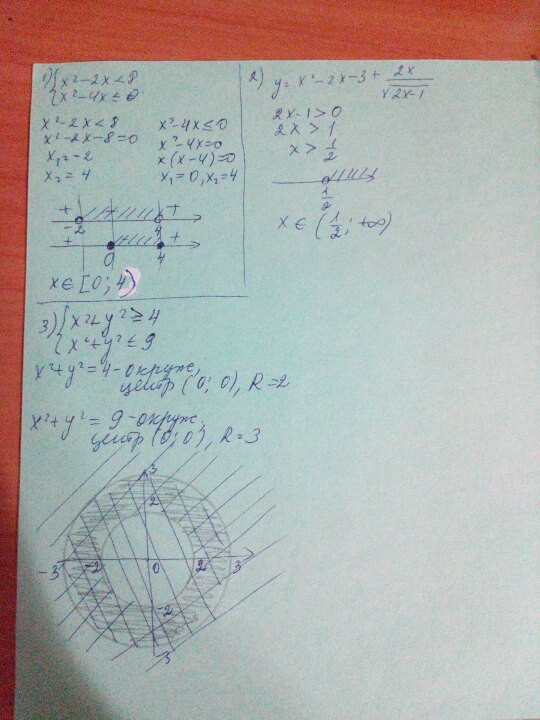 1) { x² - 2x < 8
{ x² - 4x ≤ 0
x² - 2x < 8
x² - 2x - 8 = 0
x₁ = -2
x₂ = 4
x² - 4x ≤ 0
x² - 4x = 0
x(x - 4) = 0
x₁ = 0, x₂ = 4
+ + 
-2 4
+ +
0 4
x ∈ [0; 4)
2) y = x² - 2x - 3 + 2x/√(2x-1)
2x - 1 > 0
2x > 1
x > 1/2
1/2
x ∈ (1/2; +∞)
3) { x² + y² ≥ 4
{ x² + y² ≤ 9
x² + y² = 4 - окруж,
центр (0; 0), R = 2
x² + y² = 9 - окруж,
центр (0; 0), R = 3
3
2
-3 -2 0 2 3
-2
-3